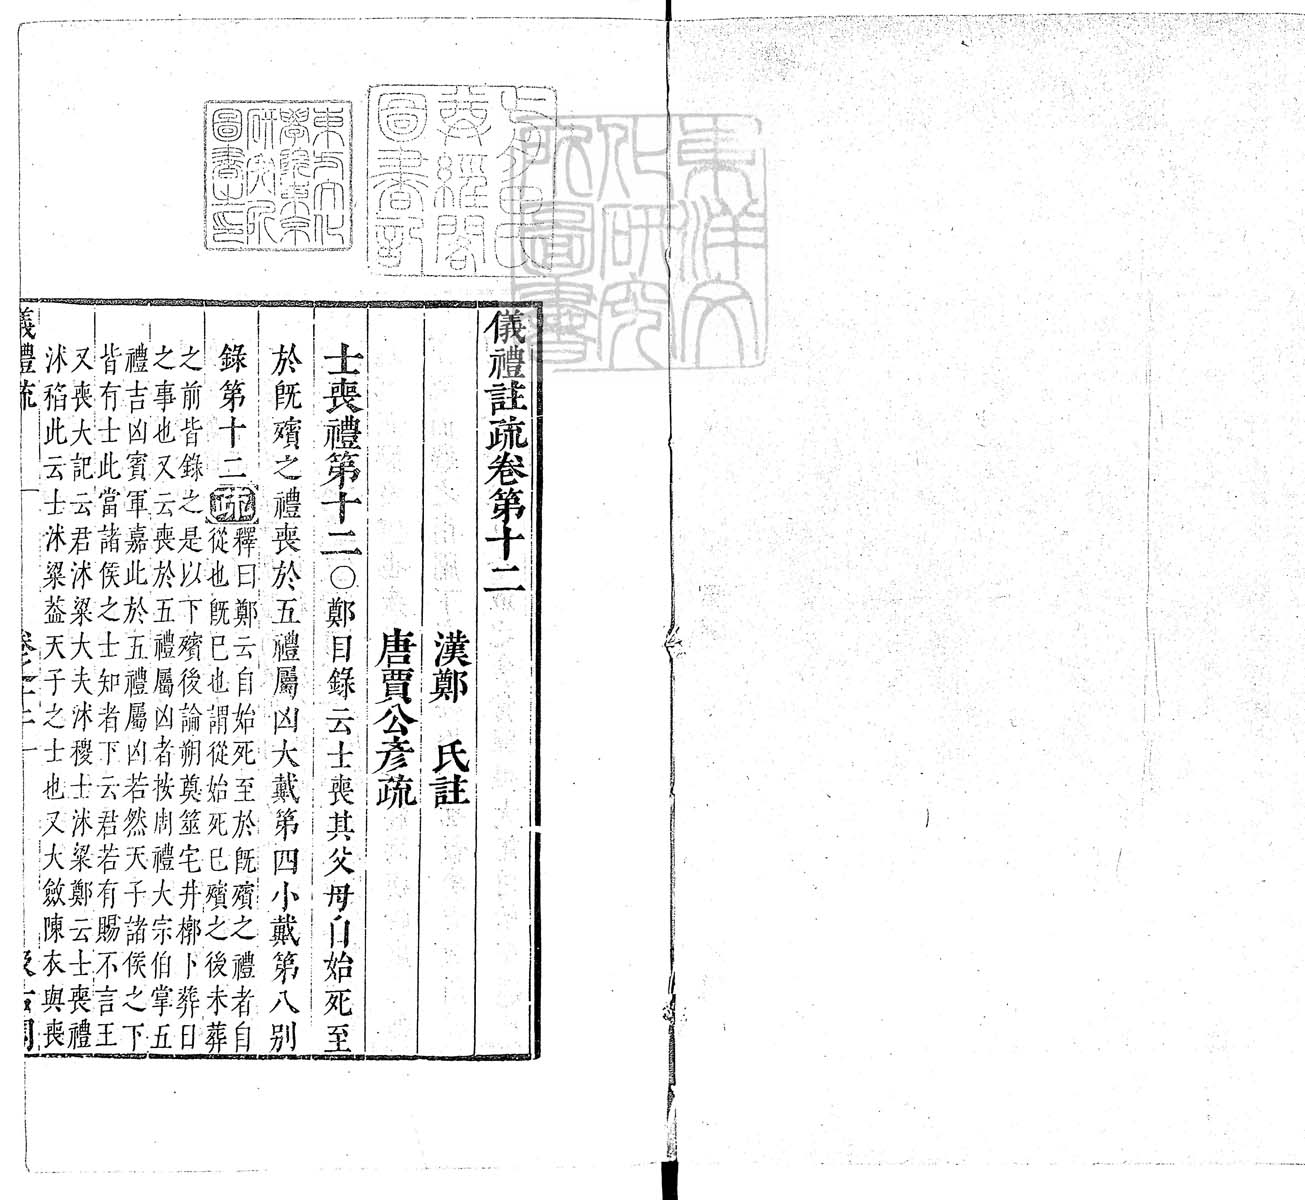 儀禮註疏卷第十二
漢鄭　氏註
唐賈公彥疏
士喪禮第十二○鄭目錄云士喪其父母自始死至
於旣殯之禮喪於五禮屬凶大戴第四小戴第八別
錄第十二疏
釋曰鄭云自始死至於旣殯之禮者自
從也旣巳也謂從始死巳殯之後未葬
之前皆錄之是以下殯後論朔奠筮宅井槨卜葬日
之事也又云喪於五禮屬凶者按周禮大宗伯掌五
禮吉凶賓軍嘉此於五禮屬凶若然天子諸侯之下
皆有士此當諸侯之士知者下云君若有賜不言王
又喪大記云君沐粱大夫沐稷士沐粱鄭云士喪禮
沐稻此云士沐粱葢天子之士也又大斂陳衣與喪
儀禮疏
卷之十二 一
汲古閣
東方文化學院東京研究所圖書之印
尊經閣圖書記
東洋文化研究所圖書